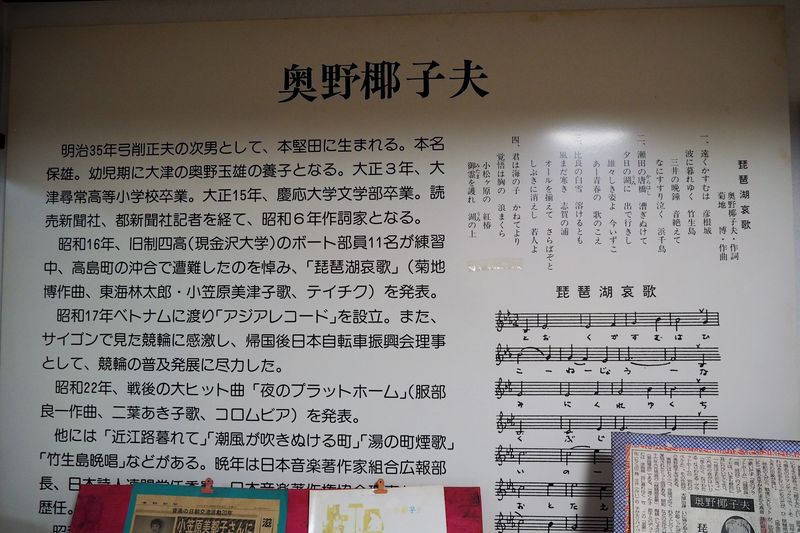 奥野椰子夫
明治35年弓削正夫の次男として、本堅田に生まれる。本名
保雄。幼児期に大津の奥野玉雄の養子となる。大正３年、大
津尋常高等小学校卒業。大正15年、慶応大学文学部卒業。読
売新聞社、都新聞社記者を経て、昭和６年作詞家となる。
昭和16年、旧制四高(現金沢大学)のボート部員11名が練習
中、高島町の沖合で遭難したのを悼み、「琵琶湖哀歌」（菊地
博作曲、東海林太郎・小笠原美津子歌、テイチク）を発表。
昭和17年ベトナムに渡り「アジアレコード」を設立。また、
サイゴンで見た競輪に感激し、帰国後日本自転車振興会理事
として、競輪の普及発展に尽力した。
昭和22年、戦後の大ヒット曲「夜のプラットホーム」（服部
良一作曲、二葉あき子歌、コロムビア）を発表。
他には「近江路暮れて」「潮風が吹きぬける町」「湯の町煙歌」
「竹生島晩唱」などがある。晩年は日本音楽著作家組合広報部
長、日本詩人連盟常任委
歴任。
琵琶湖哀歌
奥野椰子夫・作詞
菊地　博・作曲
一、遠くかすむは　彦根城
波に暮れゆく　竹生島
三井の晩鐘　音絶えて
なにすすり泣く　浜千鳥
二、瀬田の唐橋　漕ぎぬけて
夕日の湖に　出で行きし
雄々しき姿よ　今いずこ
あゝ青春の　歌のこえ
三、比良の白雪　溶けるとも
風まだ寒き　志賀の浦
オールを揃えて　さらばぞと
しぶきに消えし　若人よ
四、君は海の子　かねてより
覚悟は胸の　浪まくら
小松ヶ原の　紅椿
御霊を護れ　湖の上
琵琶湖哀歌
とおくかすむはひ
こーねじょうーな
みにくれゆくち
くぶじ
いの
おとたえ
小笠原美都子さんに
滋
奥野椰子夫
琵